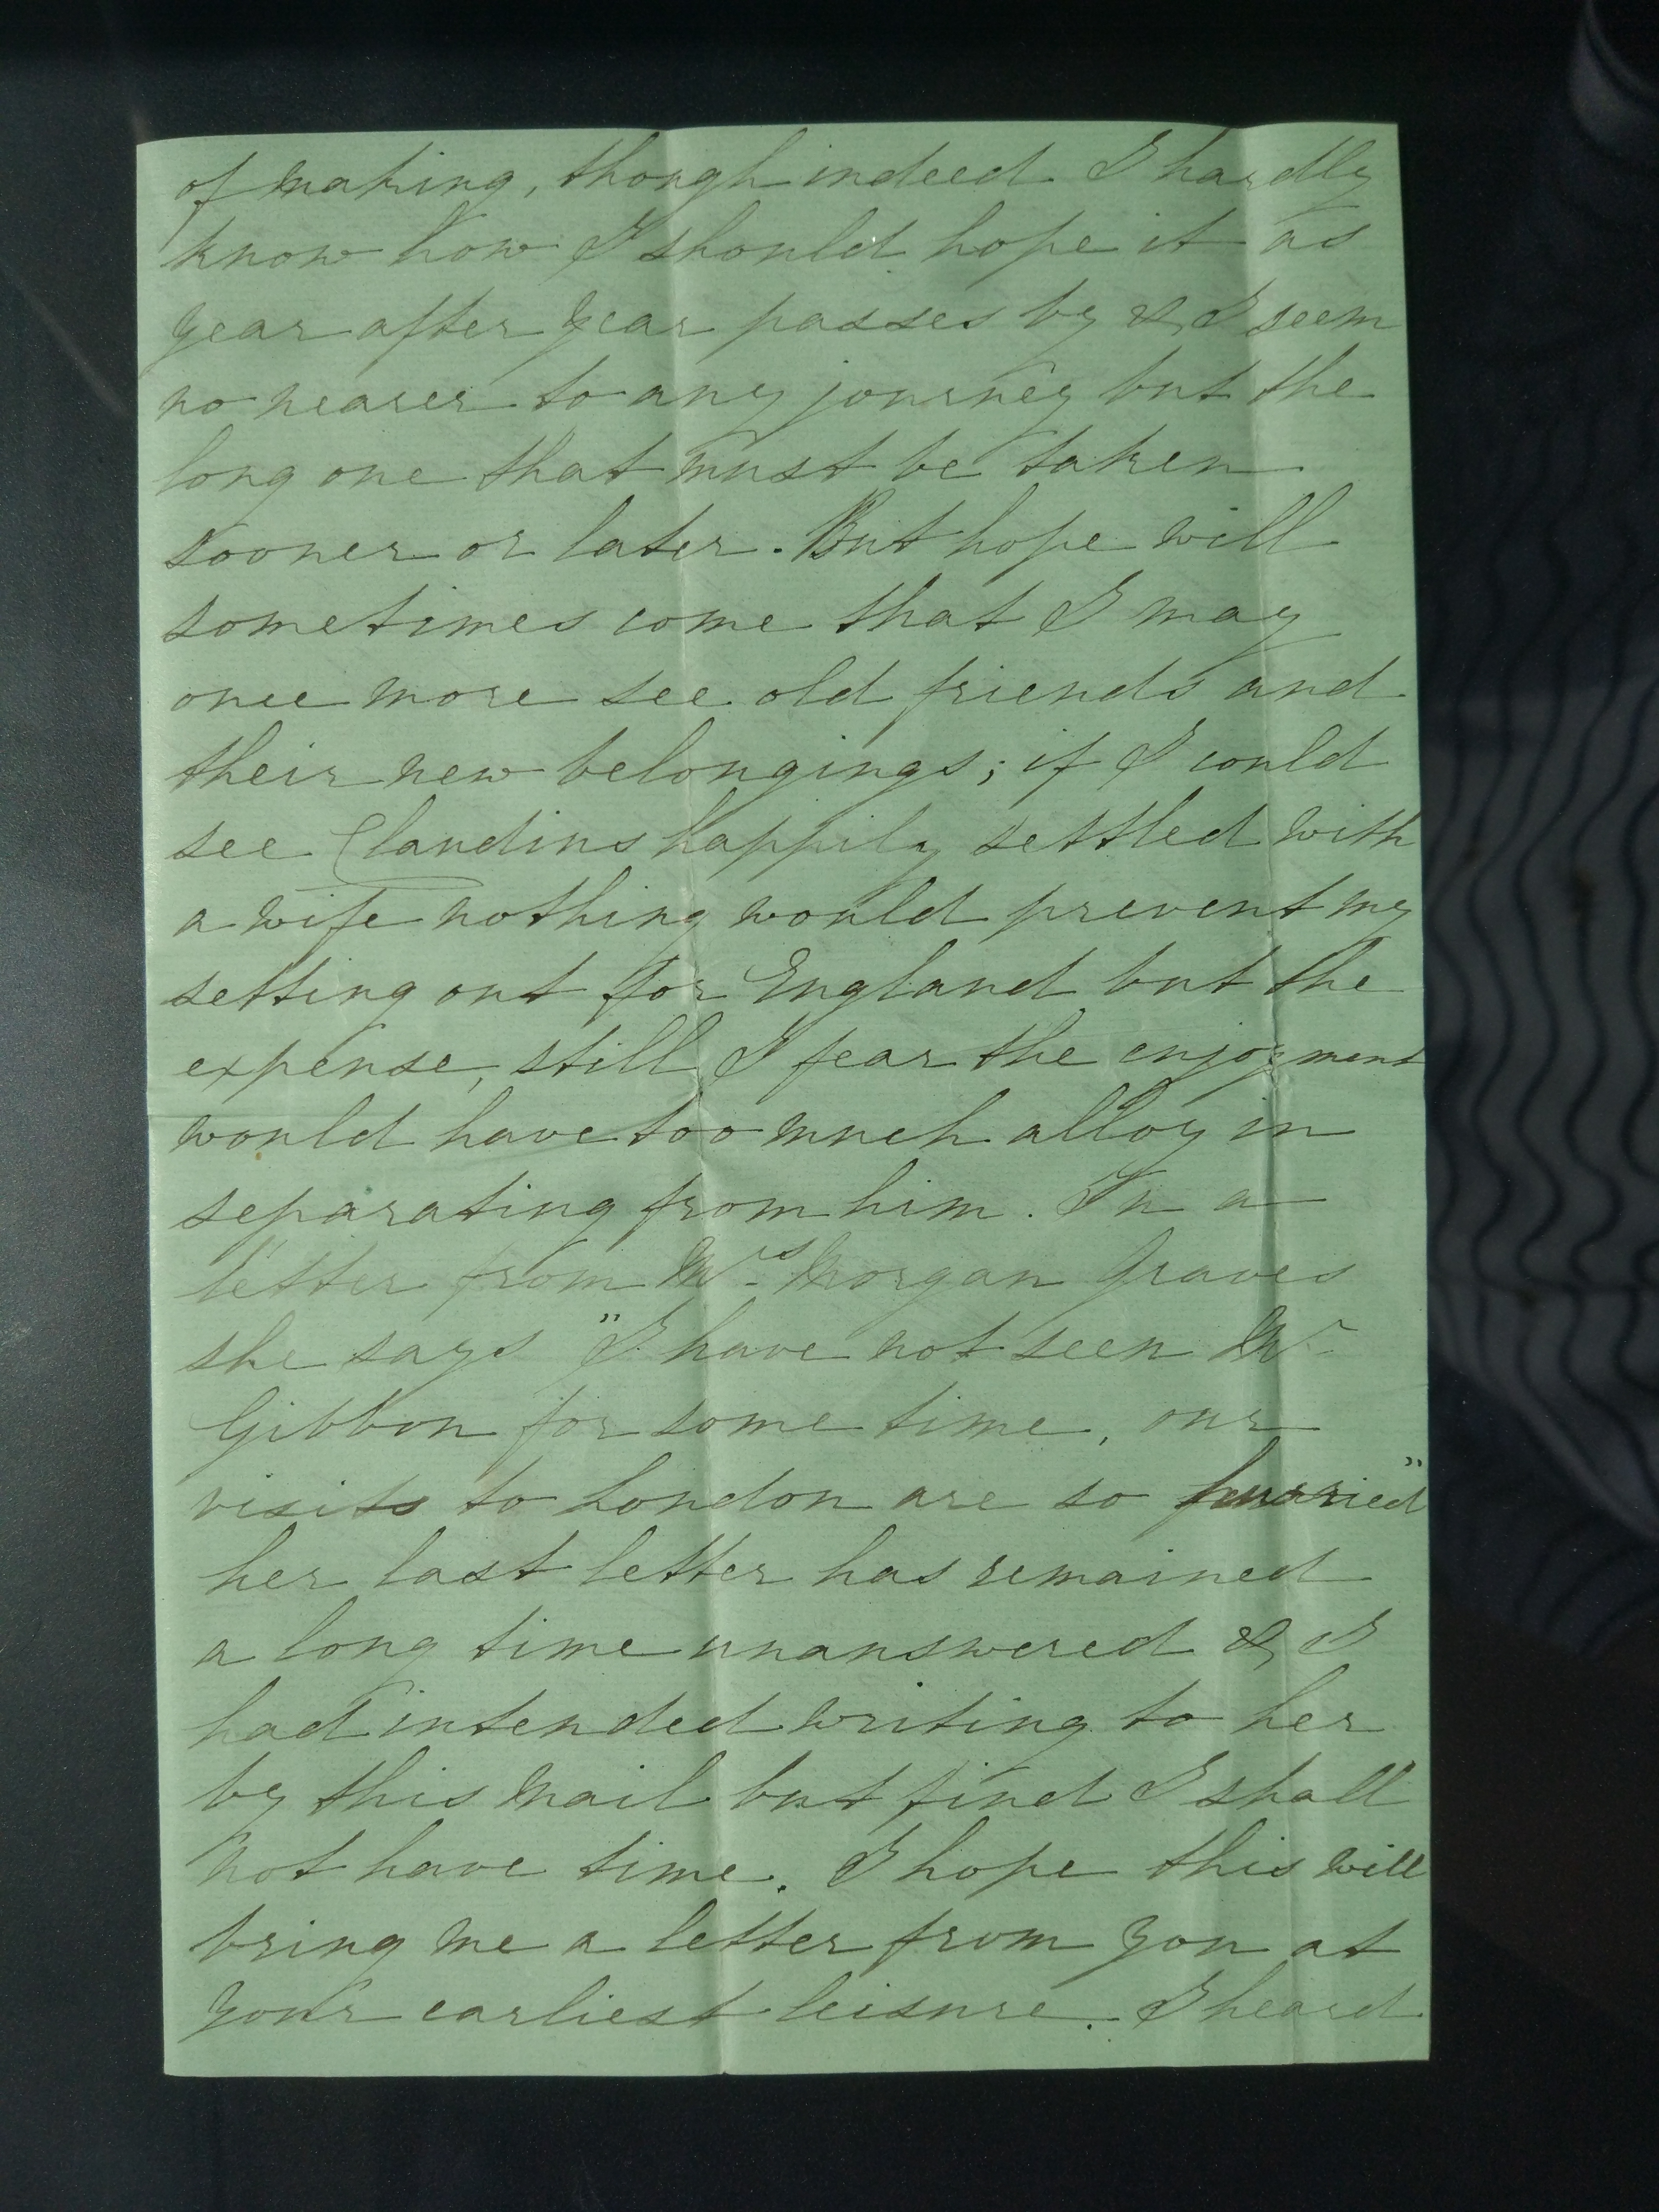 of making, though indeed I hardly
know how I should hope it as
year after year passes by & I seem
no nearer to any journey but the
long one that must be taken
sooner or later. But hope will
sometimes come that I may
once more see old friends and
their new belongings; if I could
see Claudius happily settled with
a wife nothing would prevent my
setting out for England but the
expense, still I fear the enjoyment
would have too much alloy in
separating from him. In a
letter from Mrs Morgan Graves
she says "I have not seen Mr
Gibbon for some time, our
visits to London are so hurried"
her last letter has remained
a long time unanswered & I
had intended writing to her
by this mail but find I shall
not have time. I hope this will
bring me a letter from you at
your earliest leisure. I heard